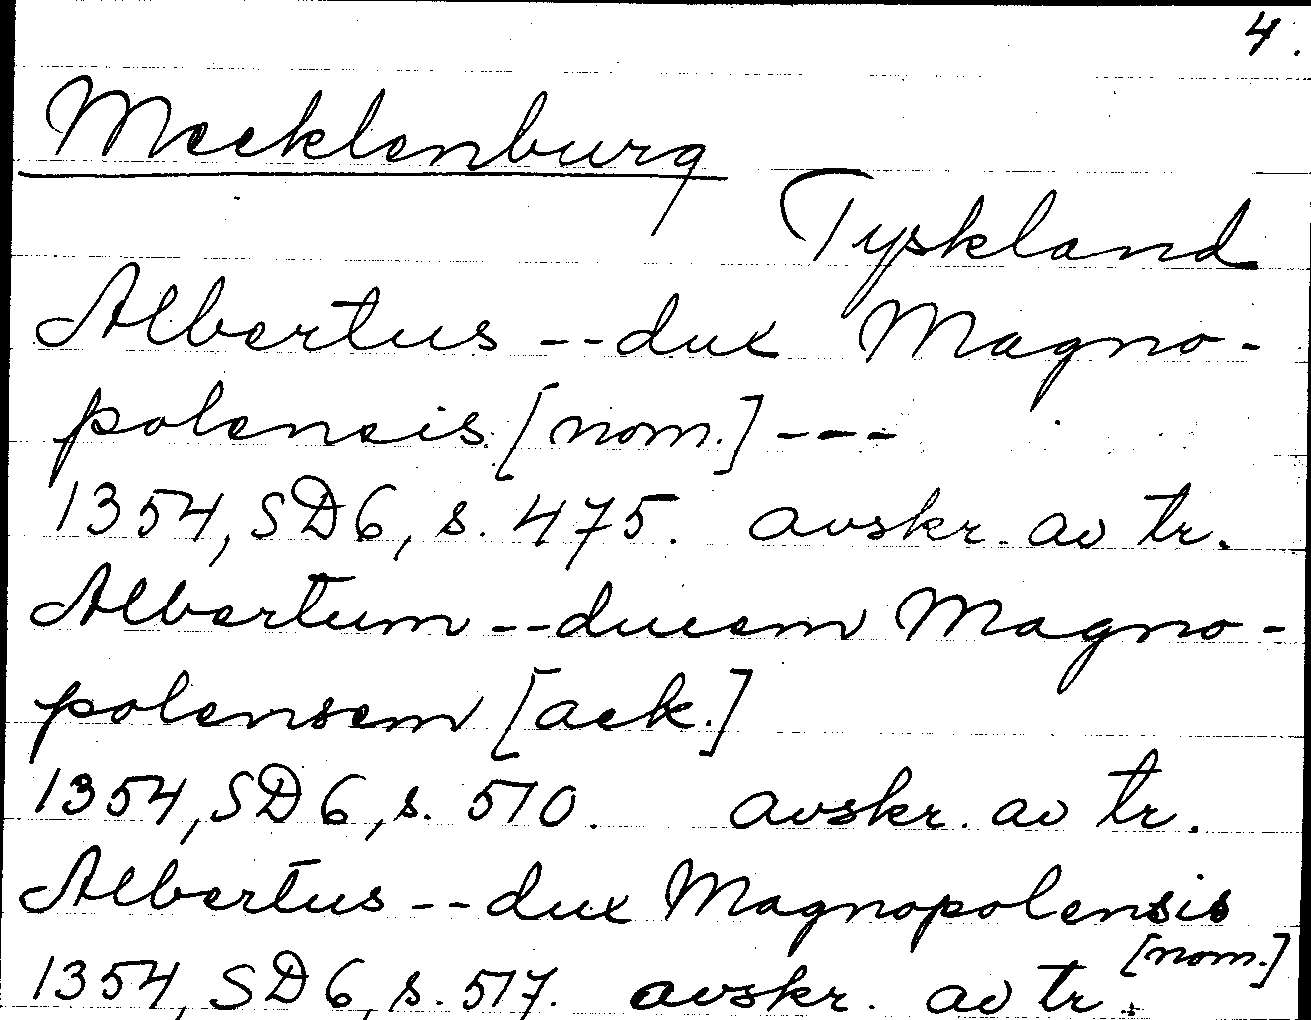 4.
Mecklenburg
Tyskland
Albertus -- dux Magno-
polensis [nom.] ---
1354, SD 6, s. 475. avskr. av tr.
Albertum -- ducem Magno-
polensem [ack.]
1354, SD 6, s. 510. avskr. av tr.
Albertus -- dux Magnopolensis
[nom.]
1354, SD 6, s. 517. avskr. av tr.